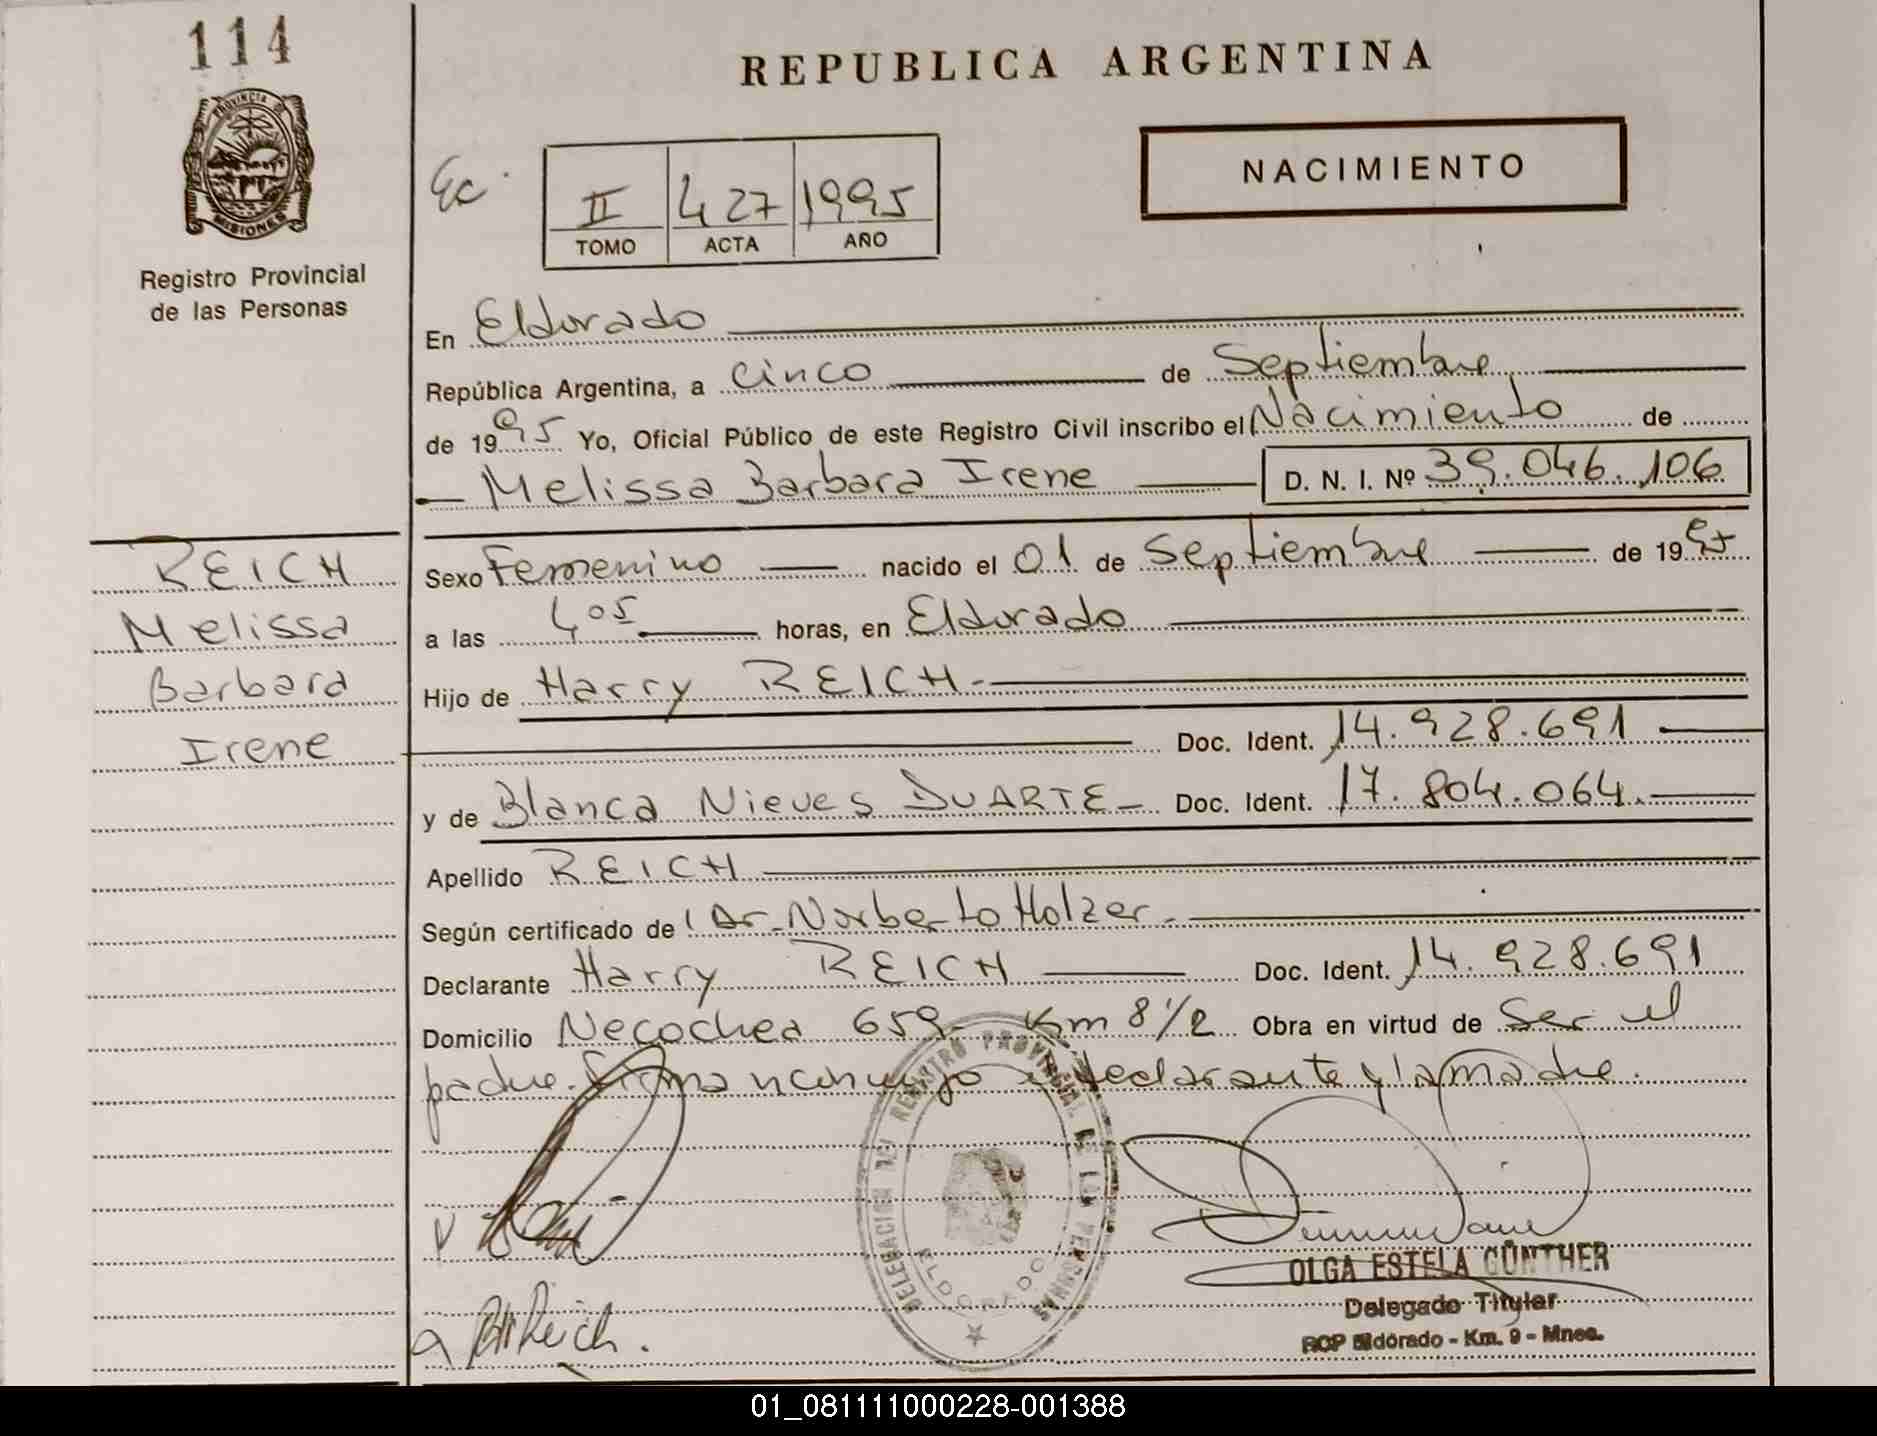 114
PROVINCIA DE
MISIONES
Registro Provincial
de las Personas
REPUBLICA ARGENTINA
NACIMIENTO
Ec.
II 427 1995
TOMO ACTA AÑO
En Eldorado
República Argentina, a cinco de Septiembre
de 1995 Yo, Oficial Público de este Registro Civil inscribo el Nacimiento de
Melissa Barbara Irene D. N. I. Nº 39.046.106
REICH
Melissa
Barbara
Irene
Sexo Femenino nacido el 01 de Septiembre de 1995
a las 4 05 horas, en Eldorado
Hijo de Harry REICH
Doc. Ident. 14.928.691
y de Blanca Nieves DUARTE Doc. Ident. 17.804.064.
Apellido REICH
Según certificado de l Dr. Norberto Holzer.
Declarante Harry REICH Doc. Ident. 14.928.691
Domicilio Necochea 659 Km 8 1/2 Obra en virtud de Ser el
padre. Firman conmigo el declarante y la madre.
DELEGACION DEL REGISTRO PROVINCIAL DE LAS PERSONAS
ELDORADO
OLGA ESTELA GÜNTHER
Delegado Titular
RCP Eldorado - Km. 9 - Mnes.
Reich.
01_081111000228-001388